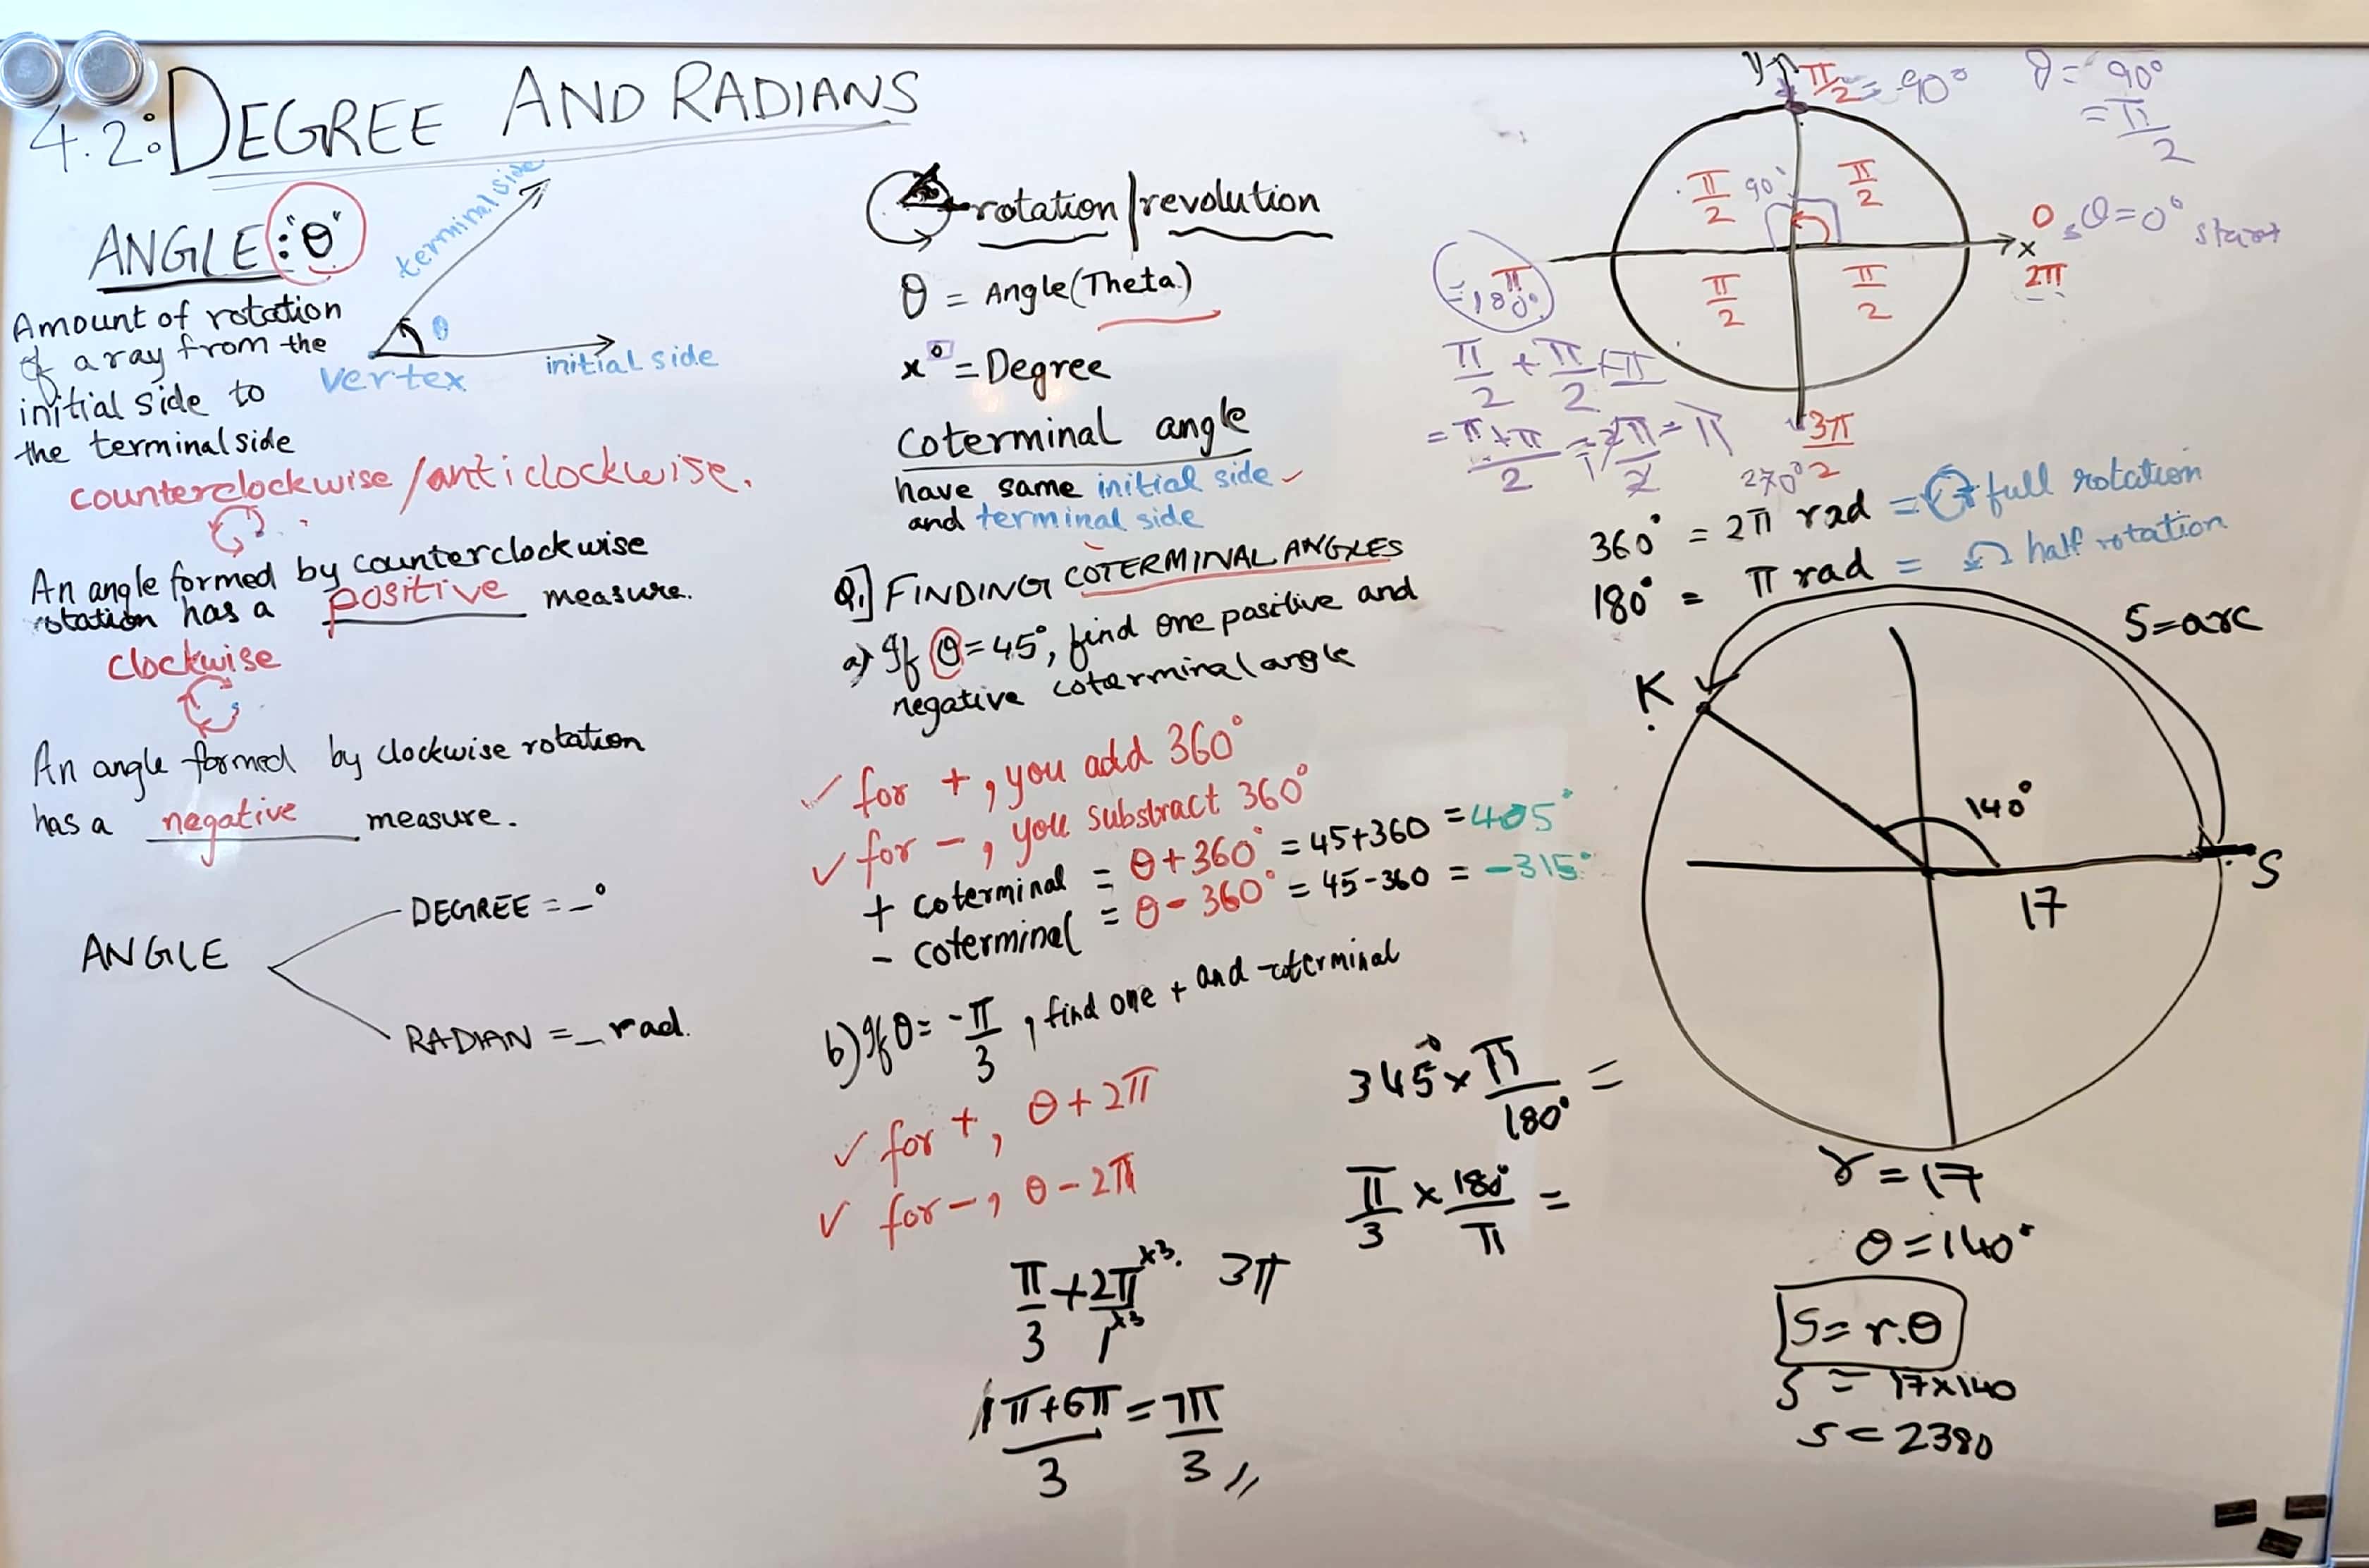 4.2: DEGREE AND RADIANS
ANGLE: "θ"
terminal side
θ
vertex
initial side
Amount of rotation
of a ray from the
initial side to
the terminal side
counterclockwise / anticlockwise.
An angle formed by counterclockwise
rotation has a positive measure.
clockwise
An angle formed by clockwise rotation
has a negative measure.
ANGLE
DEGREE = _°
RADIAN = _ rad.
rotation | revolution
θ = Angle (Theta)
x° = Degree
Coterminal angle
have same initial side
and terminal side
Q.] FINDING COTERMINAL ANGLES
a) If θ = 45°, find one positive and
negative coterminal angle
✓ for +, you add 360°
✓ for −, you substract 360°
+ coterminal = θ + 360° = 45+360 = 405°
− coterminal = θ − 360° = 45-360 = −315°
b) If θ = -π/3, find one + and -coterminal
✓ for +, θ + 2π
✓ for −, θ − 2π
π/3 + 2π/1 ×3 ×3 3π
1π+6π/3 = 7π/3 //
345° × π/180° =
π/3 × 180°/π =
y π/2 = 90°
θ = 90°
= π/2
π/2 90° π/2
0 θ=0° start
x
2π
π
= 180°
π/2 π/2
π/2 + π/2 + π
= π+π/2 = 2π/2 = π
3π/2
270°
360° = 2π rad = full rotation
180° = π rad = half rotation
S=arc
K
140°
S
17
r = 17
θ = 140°
S = r.θ
S = 17×140
S = 2380